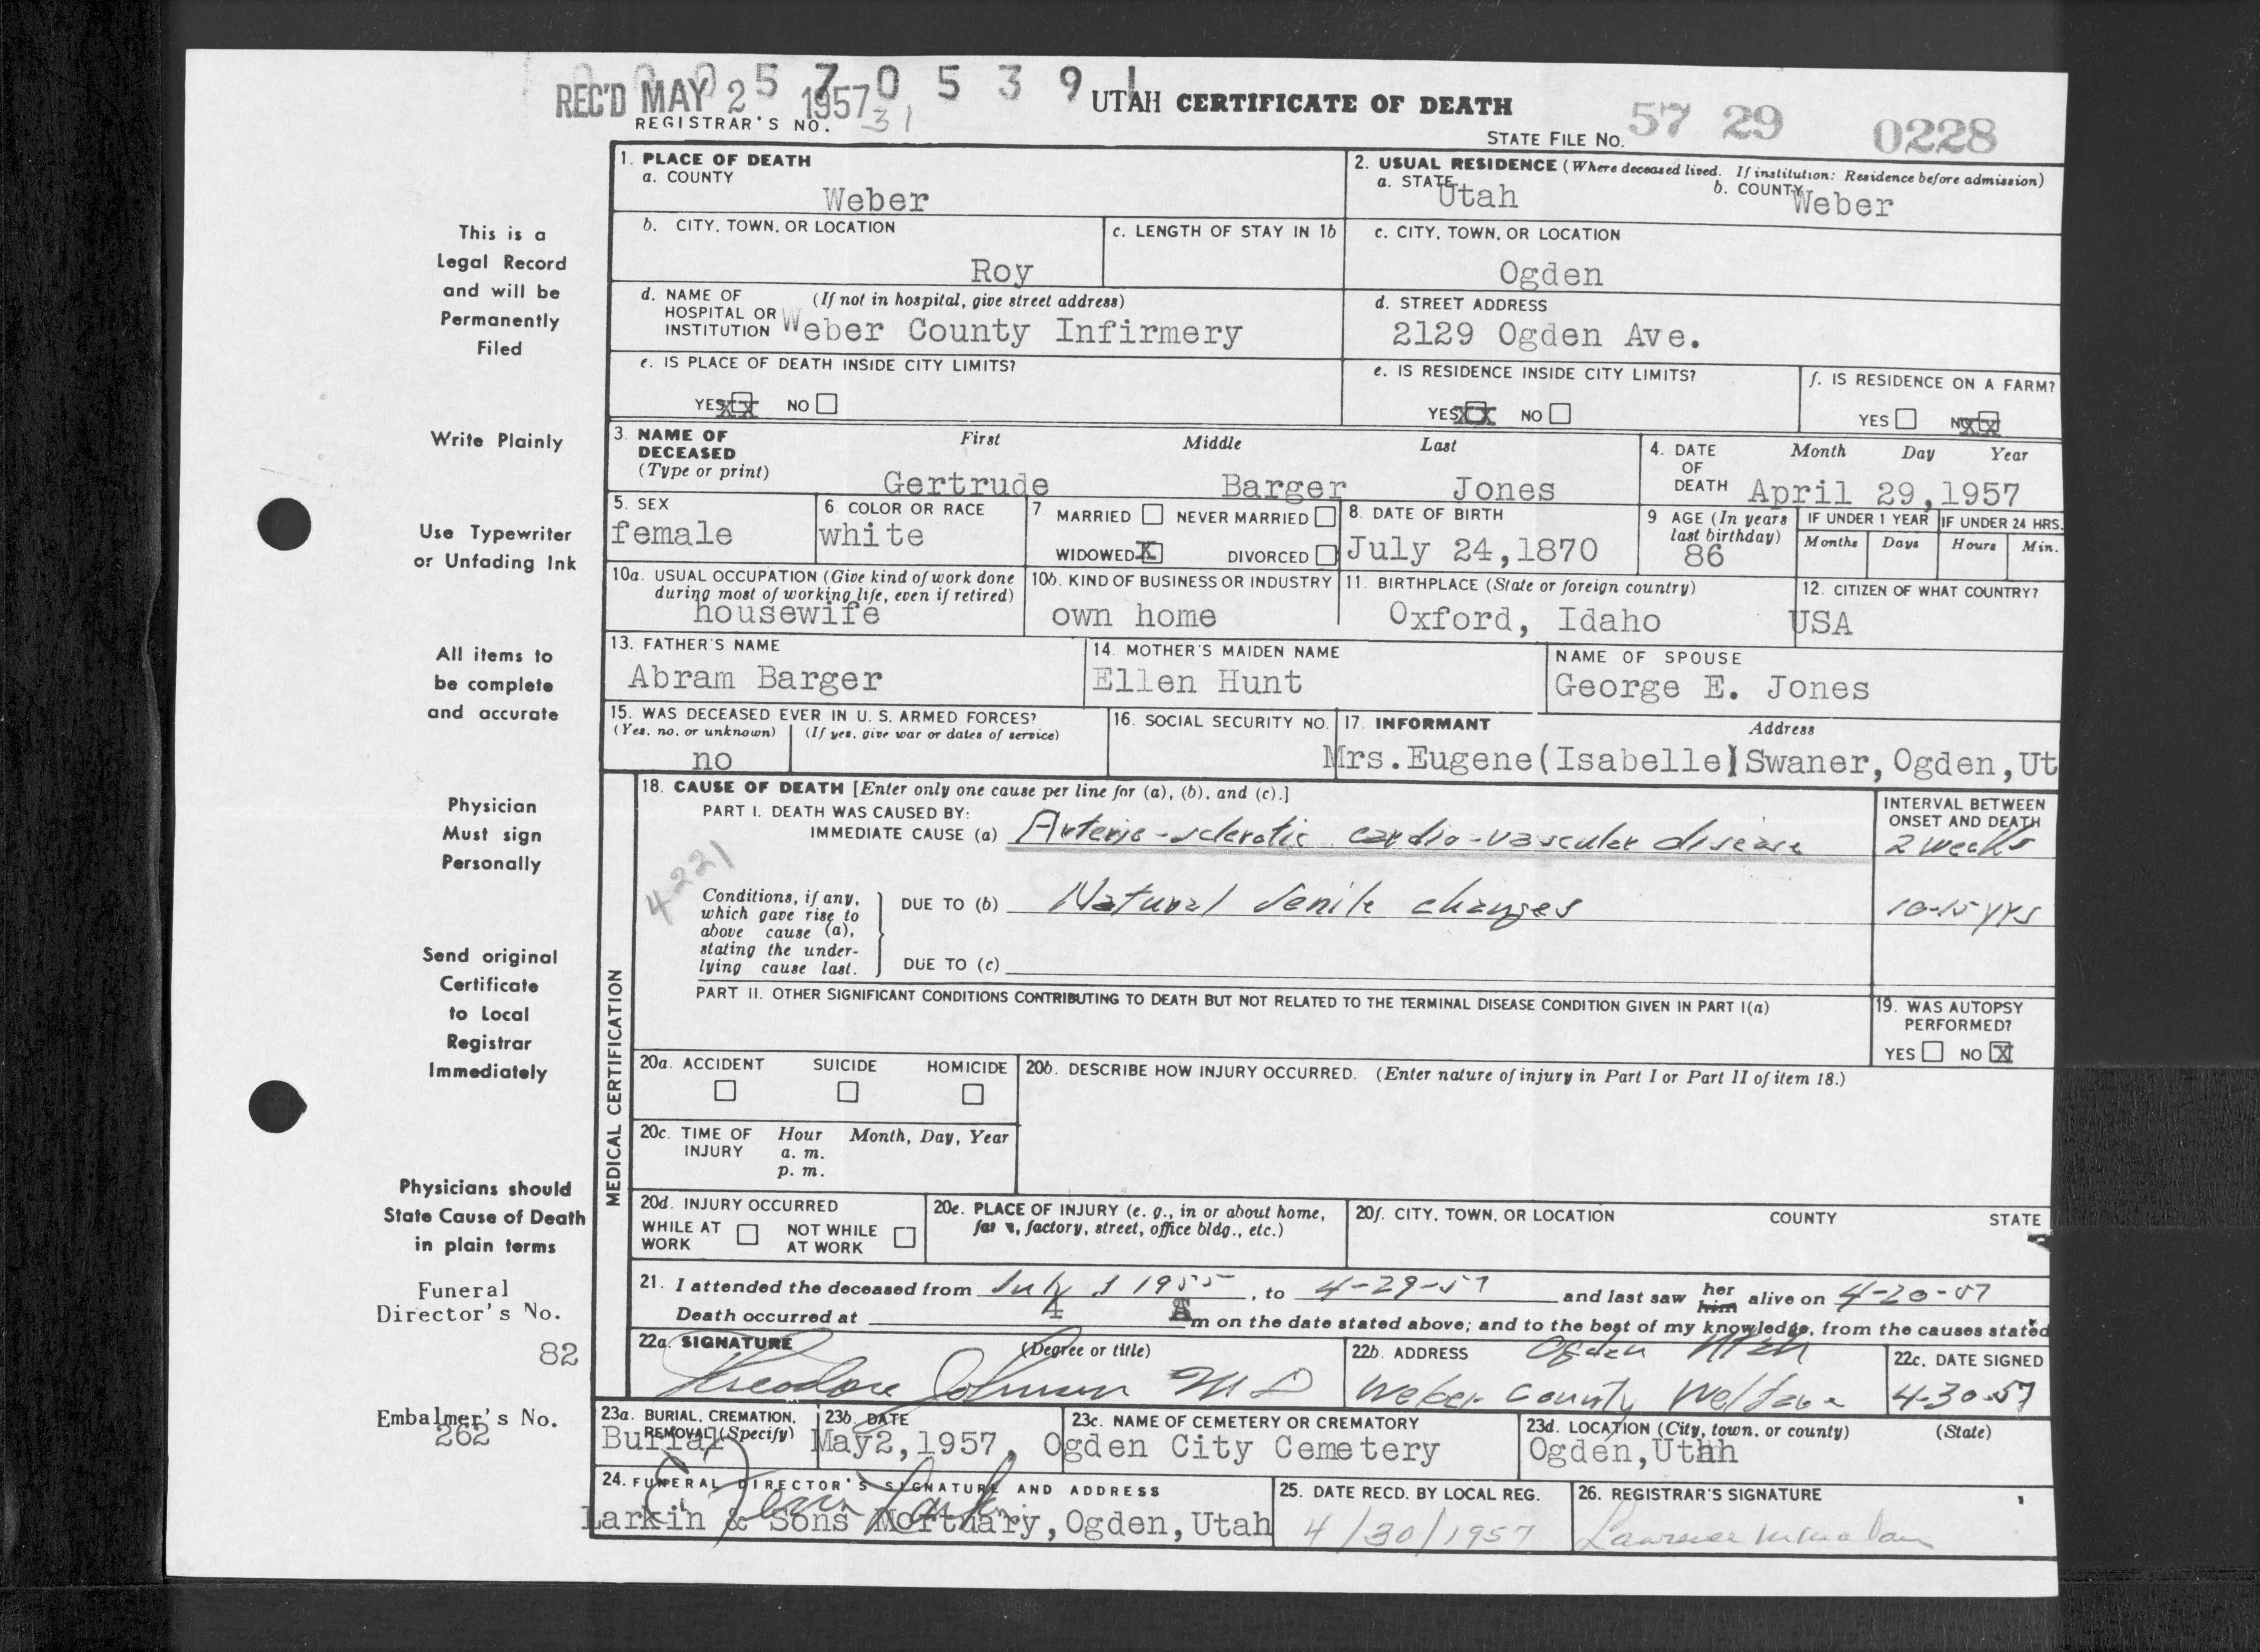 REC'D MAY 2 1957
0 0 0 5 7 0 5 3 9 1
UTAH CERTIFICATE OF DEATH
REGISTRAR'S NO. 31
STATE FILE NO. 57 29 0228
This is a
Legal Record
and will be
Permanently
Filed
Write Plainly
Use Typewriter
or Unfading Ink
All items to
be complete
and accurate
Physician
Must sign
Personally
Send original
Certificate
to Local
Registrar
Immediately
Physicians should
State Cause of Death
in plain terms
Funeral
Director's No.
82
Embalmer's No.
262
1. PLACE OF DEATH
a. COUNTY
Weber
2. USUAL RESIDENCE (Where deceased lived. If institution: Residence before admission)
a. STATE Utah b. COUNTY Weber
b. CITY, TOWN, OR LOCATION
Roy
c. LENGTH OF STAY IN 1b
c. CITY, TOWN, OR LOCATION
Ogden
d. NAME OF (If not in hospital, give street address)
HOSPITAL OR
INSTITUTION Weber County Infirmery
d. STREET ADDRESS
2129 Ogden Ave.
e. IS PLACE OF DEATH INSIDE CITY LIMITS?
YES XX NO
e. IS RESIDENCE INSIDE CITY LIMITS?
YES XX NO
f. IS RESIDENCE ON A FARM?
YES NO XX
3. NAME OF DECEASED
(Type or print)
First Middle Last
Gertrude Barger Jones
4. DATE OF DEATH Month Day Year
April 29,1957
5. SEX
female
6. COLOR OR RACE
white
7 MARRIED NEVER MARRIED
WIDOWED X DIVORCED
8. DATE OF BIRTH
July 24,1870
9 AGE (In years last birthday)
86
IF UNDER 1 YEAR IF UNDER 24 HRS.
Months Days Hours Min.
10a. USUAL OCCUPATION (Give kind of work done
during most of working life, even if retired)
housewife
10b. KIND OF BUSINESS OR INDUSTRY
own home
11. BIRTHPLACE (State or foreign country)
Oxford, Idaho
12. CITIZEN OF WHAT COUNTRY?
USA
13. FATHER'S NAME
Abram Barger
14. MOTHER'S MAIDEN NAME
Ellen Hunt
NAME OF SPOUSE
George E. Jones
15. WAS DECEASED EVER IN U. S. ARMED FORCES?
(Yes, no, or unknown) (If yes, give war or dates of service)
no
16. SOCIAL SECURITY NO.
17. INFORMANT Address
Mrs.Eugene(Isabelle)Swaner,Ogden,Ut
MEDICAL CERTIFICATION
18. CAUSE OF DEATH [Enter only one cause per line for (a), (b), and (c).]
PART I. DEATH WAS CAUSED BY:
IMMEDIATE CAUSE (a) Arterio-sclerotic cardio-vascular disease
INTERVAL BETWEEN
ONSET AND DEATH
2 weeks
4221
Conditions, if any,
which gave rise to
above cause (a),
stating the under-
lying cause last.
DUE TO (b) Natural senile changes
10-15 yrs
DUE TO (c)
PART II. OTHER SIGNIFICANT CONDITIONS CONTRIBUTING TO DEATH BUT NOT RELATED TO THE TERMINAL DISEASE CONDITION GIVEN IN PART I(a)
19. WAS AUTOPSY
PERFORMED?
YES NO X
20a. ACCIDENT SUICIDE HOMICIDE
20b. DESCRIBE HOW INJURY OCCURRED. (Enter nature of injury in Part I or Part II of item 18.)
20c. TIME OF INJURY Hour Month, Day, Year
a. m.
p. m.
20d. INJURY OCCURRED
WHILE AT WORK NOT WHILE AT WORK
20e. PLACE OF INJURY (e. g., in or about home,
factory, street, office bldg., etc.)
20f. CITY, TOWN, OR LOCATION COUNTY STATE
21. I attended the deceased from July 1 1955, to 4-29-57 and last saw her him alive on 4-20-57
Death occurred at 4 A m on the date stated above; and to the best of my knowledge, from the causes stated
22a. SIGNATURE (Degree or title)
Theodore Johnson MD
22b. ADDRESS Ogden Utah
Weber County Welfare
22c. DATE SIGNED
4-30-57
23a. BURIAL, CREMATION,
REMOVAL (Specify)
Burial
23b. DATE
May2,1957,
23c. NAME OF CEMETERY OR CREMATORY
Ogden City Cemetery
23d. LOCATION (City, town, or county) (State)
Ogden,Utah
24. FUNERAL DIRECTOR'S SIGNATURE AND ADDRESS
Larkin & Sons Mortuary,Ogden,Utah
25. DATE RECD. BY LOCAL REG.
4/30/1957
26. REGISTRAR'S SIGNATURE